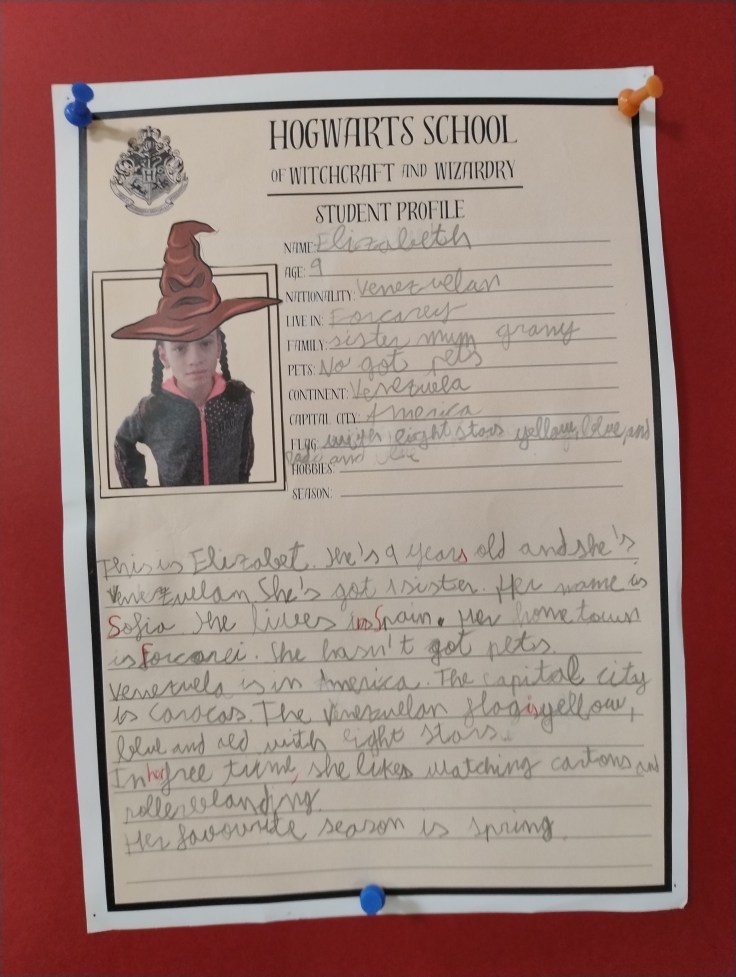 HOGWARTS SCHOOL
OF WITCHCRAFT AND WIZARDRY
STUDENT PROFILE
NAME: Elizabeth
AGE: 9
NATIONALITY: Venezuelan
LIVE IN: Forcarey
FAMILY: sister mum grany
PETS: No got pets
CONTINENT: Venezuela
CAPITAL CITY: America
FLAG: eight stars yellow, blue, and
and
HOBBIES:
SEASON:
This is Elizabet. She's 9 years old and she's
Venezuelan She's got 1 sister. Her name is
Sofia. She lives in Spain. Her home town
is Forcarei. She hasn't got pets.
Venezuela is in America. The capital city
is Caracas. The Venezuelan flag is yellow,
blue and red with eight stars.
In her free time, she likes watching cartons and
rollerblanding.
Her favourite season is spring.